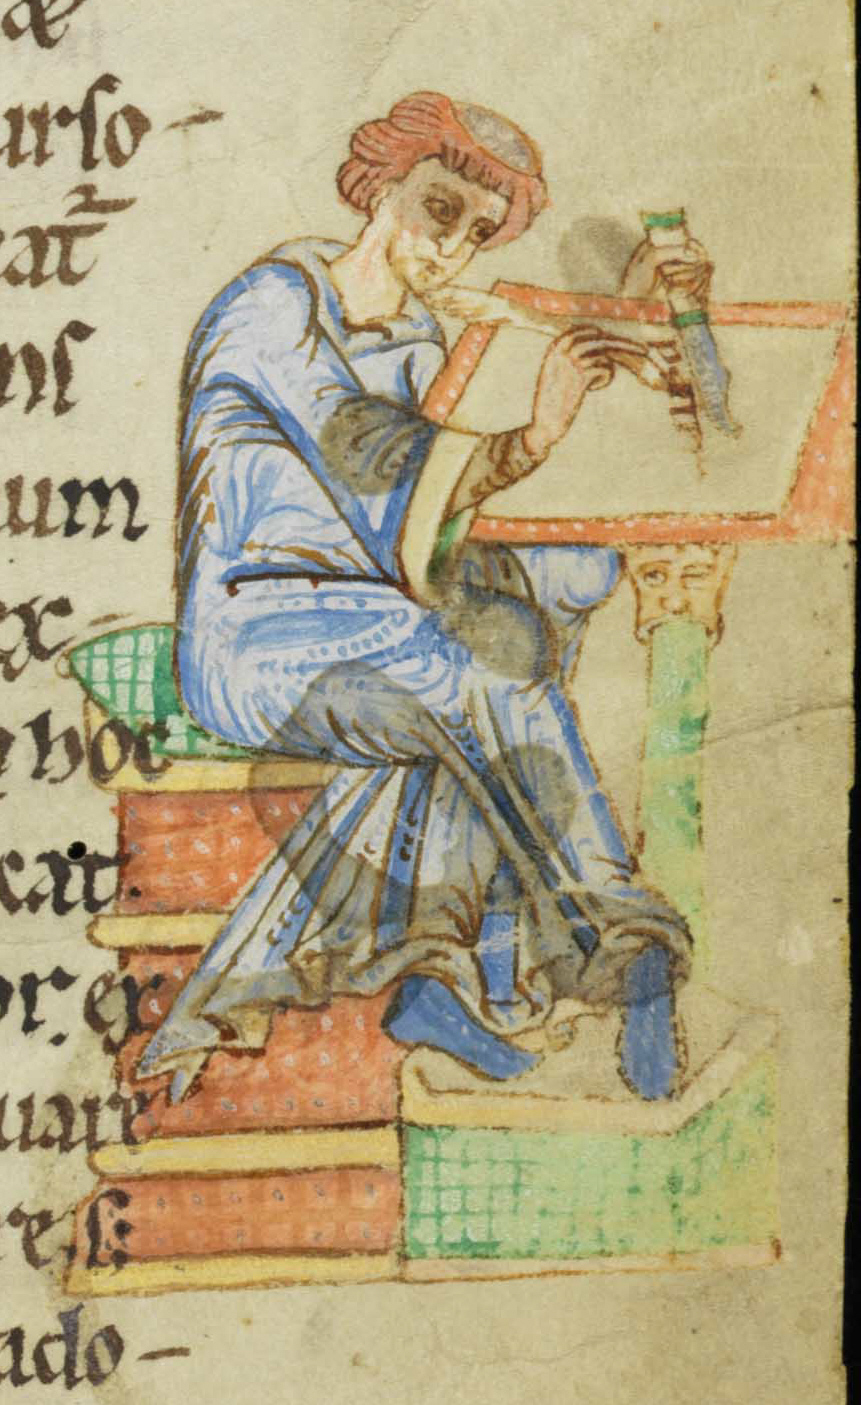 æ
urſo-
cat̃
nſ
um
ex-
hoc
cat.
or. ex
uare
re. ſi
ado-